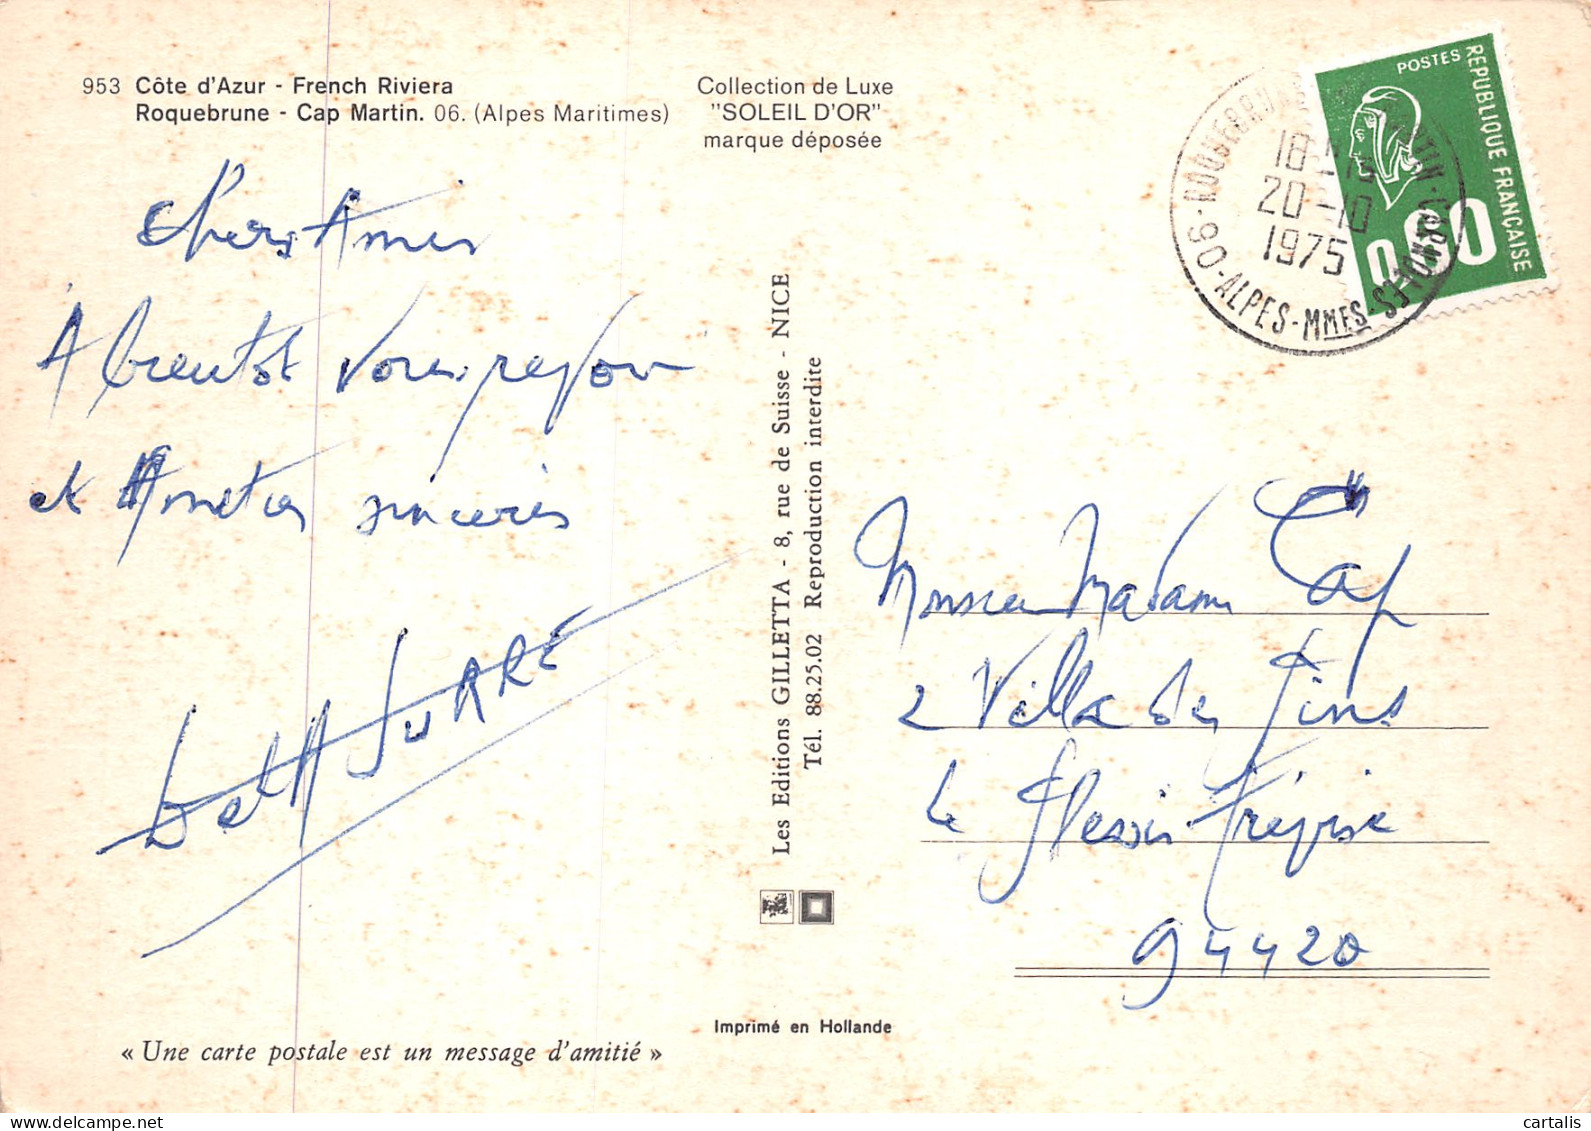 953 Côte d'Azur - French Riviera
Roquebrune - Cap Martin. 06. (Alpes Maritimes)
Collection de Luxe
"SOLEIL D'OR"
marque déposée
POSTES
REPUBLIQUE FRANÇAISE
18-
20-10
1975
06-ROQUEBRUNE
MARTIN-CARNOLES
ALPES-MMES
Chers Amis
A bientot
et Amities sinceres
Les Editions GILLETTA - 8, rue de Suisse - NICE
Tél. 88.25.02 Reproduction interdite
Monsieur Madame Cap
2 Villa des Pins
Le Plessis Trévise
94420
Imprimé en Hollande
« Une carte postale est un message d'amitié »
cartalis